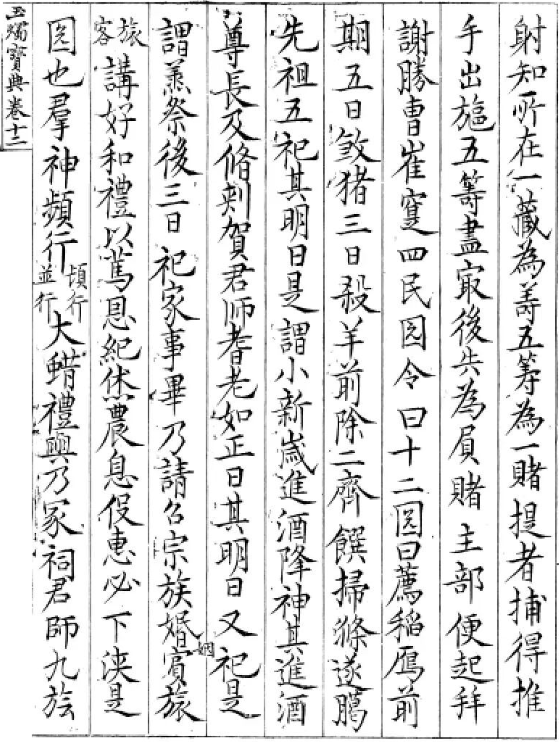 射知所在一藏為籌五籌為一賭提者捕得推
手出施五籌盡冣後失為負賭主部便起拜
謝勝曹崔寔四民圀令曰十二圀日薦稻鴈前
期五日敓猪三日殺羊前除二齊饌掃滌遂臈
先祖五祀其明日是謂小新歲進酒降神其進酒
尊長及脩刾賀君师耆老如正日其明日又祀是
謂蒸祭後三日祀家事畢乃請召宗族婚姻賓旅
旅客講好和禮以篤恩紀休農息伇惠必下浹是
圀也羣神頻行頻行並行大蜡禮興乃冢祠君師九族
玉燭寶典卷十二